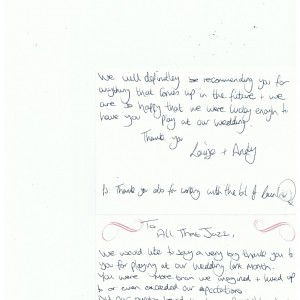 We will definitley be recommending you for
anything that comes up in the future + we
are so happy that we were lucky enogh to
have you play at our wedding.
Thank you
Louise + Andy
Ps. Thank you also for coming with the bit of
To
All That Jazz,
We would like to say a very big thank you to
you for playing at our wedding last month.
You were more than we imagined + lived up
to or even exceeded our expectations.